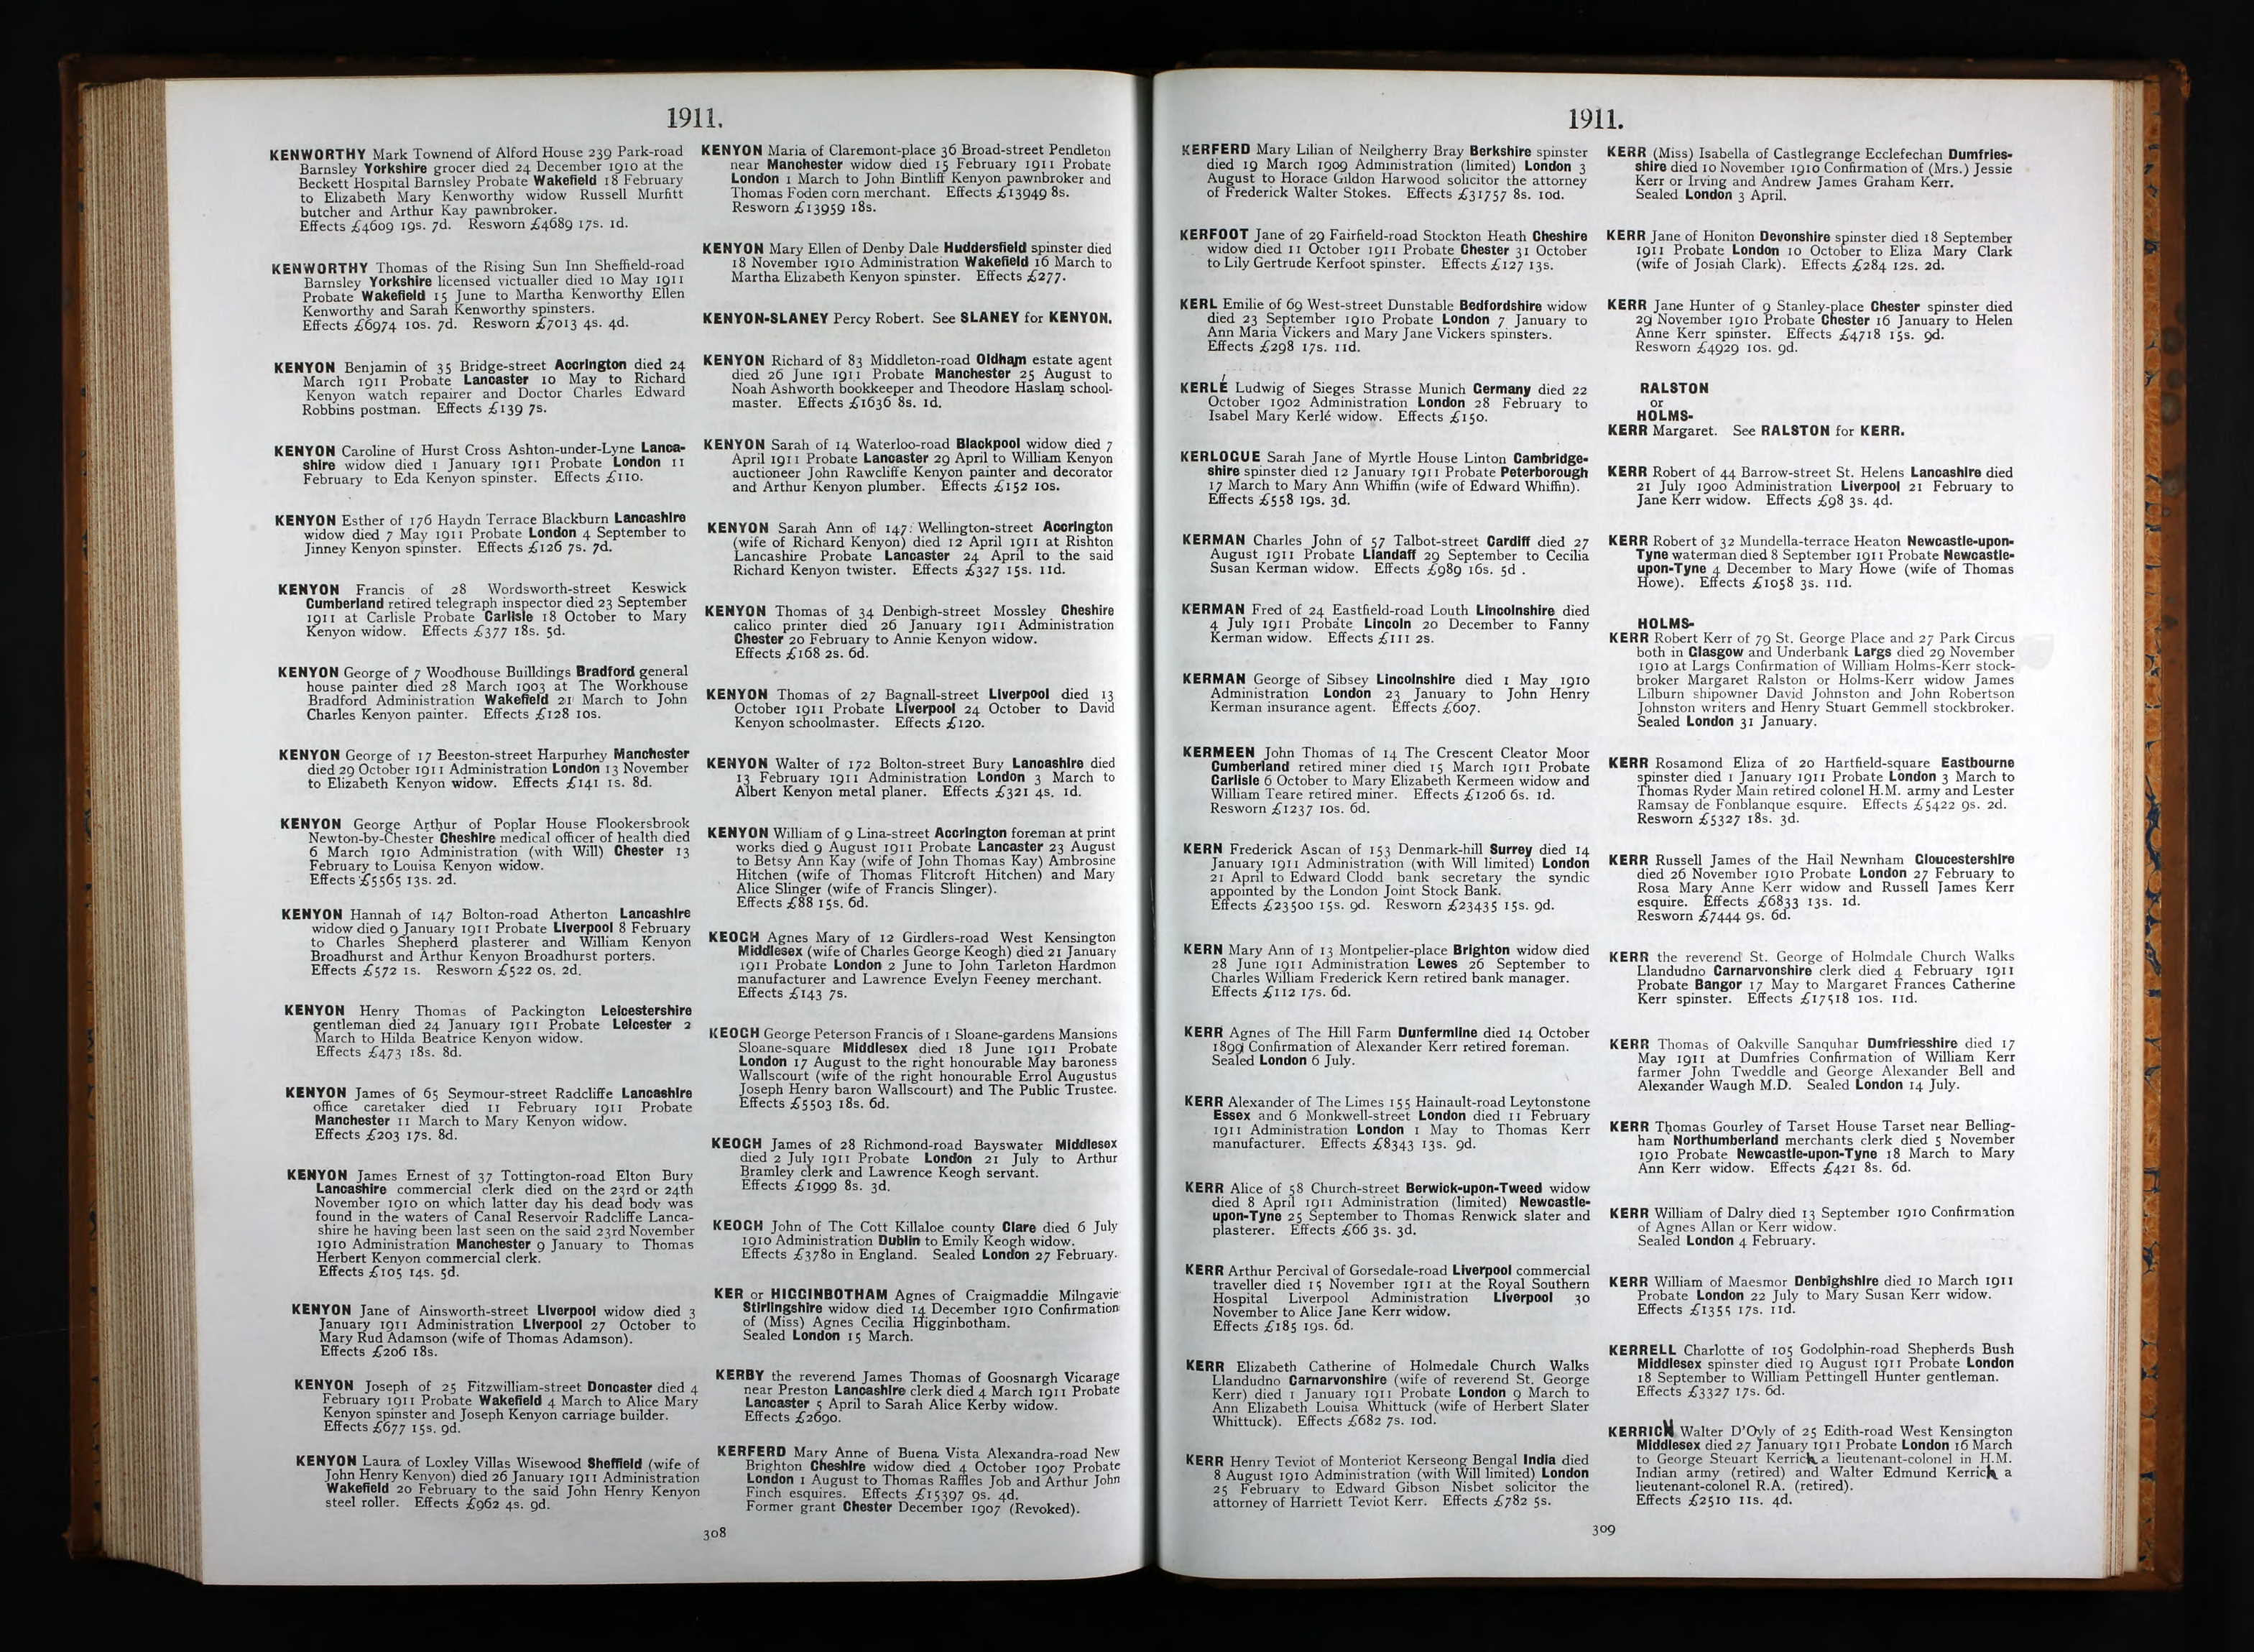 1911.
KENWORTHY Mark Townend of Alford House 239 Park-road
Barnsley Yorkshire grocer died 24 December 1910 at the
Beckett Hospital Barnsley Probate Wakefield 18 February
to Elizabeth Mary Kenworthy widow Russell Murfitt
butcher and Arthur Kay pawnbroker.
Effects £4609 19s. 7d. Resworn £4689 17s. 1d.
KENWORTHY Thomas of the Rising Sun Inn Sheffield-road
Barnsley Yorkshire licensed victualler died 10 May 1911
Probate Wakefield 15 June to Martha Kenworthy Ellen
Kenworthy and Sarah Kenworthy spinsters.
Effects £6974 10s. 7d. Resworn £7013 4s. 4d.
KENYON Benjamin of 35 Bridge-street Accrington died 24
March 1911 Probate Lancaster 10 May to Richard
Kenyon watch repairer and Doctor Charles Edward
Robbins postman. Effects £139 7s.
KENYON Caroline of Hurst Cross Ashton-under-Lyne Lanca-
shire widow died 1 January 1911 Probate London 11
February to Eda Kenyon spinster. Effects £110.
KENYON Esther of 176 Haydn Terrace Blackburn Lancashire
widow died 7 May 1911 Probate London 4 September to
Jinney Kenyon spinster. Effects £126 7s. 7d.
KENYON Francis of 28 Wordsworth-street Keswick
Cumberland retired telegraph inspector died 23 September
1911 at Carlisle Probate Carlisle 18 October to Mary
Kenyon widow. Effects £377 18s. 5d.
KENYON George of 7 Woodhouse Builldings Bradford general
house painter died 28 March 1903 at The Workhouse
Bradford Administration Wakefield 21 March to John
Charles Kenyon painter. Effects £128 10s.
KENYON George of 17 Beeston-street Harpurhey Manchester
died 29 October 1911 Administration London 13 November
to Elizabeth Kenyon widow. Effects £141 1s. 8d.
KENYON George Arthur of Poplar House Flookersbrook
Newton-by-Chester Cheshire medical officer of health died
6 March 1910 Administration (with Will) Chester 13
February to Louisa Kenyon widow.
Effects £5565 13s. 2d.
KENYON Hannah of 147 Bolton-road Atherton Lancashire
widow died 9 January 1911 Probate Liverpool 8 February
to Charles Shepherd plasterer and William Kenyon
Broadhurst and Arthur Kenyon Broadhurst porters.
Effects £572 1s. Resworn £522 0s. 2d.
KENYON Henry Thomas of Packington Leicestershire
gentleman died 24 January 1911 Probate Leicester 2
March to Hilda Beatrice Kenyon widow.
Effects £473 18s. 8d.
KENYON James of 65 Seymour-street Radcliffe Lancashire
office caretaker died 11 February 1911 Probate
Manchester 11 March to Mary Kenyon widow.
Effects £203 17s. 8d.
KENYON James Ernest of 37 Tottington-road Elton Bury
Lancashire commercial clerk died on the 23rd or 24th
November 1910 on which latter day his dead body was
found in the waters of Canal Reservoir Radcliffe Lanca-
shire he having been last seen on the said 23rd November
1910 Administration Manchester 9 January to Thomas
Herbert Kenyon commercial clerk.
Effects £105 14s. 5d.
KENYON Jane of Ainsworth-street Liverpool widow died 3
January 1911 Administration Liverpool 27 October to
Mary Rud Adamson (wife of Thomas Adamson).
Effects £206 18s.
KENYON Joseph of 25 Fitzwilliam-street Doncaster died 4
February 1911 Probate Wakefield 4 March to Alice Mary
Kenyon spinster and Joseph Kenyon carriage builder.
Effects £677 15s. 9d.
KENYON Laura of Loxley Villas Wisewood Sheffield (wife of
John Henry Kenyon) died 26 January 1911 Administration
Wakefield 20 February to the said John Henry Kenyon
steel roller. Effects £962 4s. 9d.
KENYON Maria of Claremont-place 36 Broad-street Pendleton
near Manchester widow died 15 February 1911 Probate
London 1 March to John Bintliff Kenyon pawnbroker and
Thomas Foden corn merchant. Effects £13949 8s.
Resworn £13959 18s.
KENYON Mary Ellen of Denby Dale Huddersfield spinster died
18 November 1910 Administration Wakefield 16 March to
Martha Elizabeth Kenyon spinster. Effects £277.
KENYON-SLANEY Percy Robert. See SLANEY for KENYON.
KENYON Richard of 83 Middleton-road Oldham estate agent
died 26 June 1911 Probate Manchester 25 August to
Noah Ashworth bookkeeper and Theodore Haslam school-
master. Effects £1636 8s. 1d.
KENYON Sarah of 14 Waterloo-road Blackpool widow died 7
April 1911 Probate Lancaster 29 April to William Kenyon
auctioneer John Rawcliffe Kenyon painter and decorator
and Arthur Kenyon plumber. Effects £152 10s.
KENYON Sarah Ann of 147 Wellington-street Accrington
(wife of Richard Kenyon) died 12 April 1911 at Rishton
Lancashire Probate Lancaster 24 April to the said
Richard Kenyon twister. Effects £327 15s. 11d.
KENYON Thomas of 34 Denbigh-street Mossley Cheshire
calico printer died 26 January 1911 Administration
Chester 20 February to Annie Kenyon widow.
Effects £168 2s. 6d.
KENYON Thomas of 27 Bagnall-street Liverpool died 13
October 1911 Probate Liverpool 24 October to David
Kenyon schoolmaster. Effects £120.
KENYON Walter of 172 Bolton-street Bury Lancashire died
13 February 1911 Administration London 3 March to
Albert Kenyon metal planer. Effects £321 4s. 1d.
KENYON William of 9 Lina-street Accrington foreman at print
works died 9 August 1911 Probate Lancaster 23 August
to Betsy Ann Kay (wife of John Thomas Kay) Ambrosine
Hitchen (wife of Thomas Flitcroft Hitchen) and Mary
Alice Slinger (wife of Francis Slinger).
Effects £88 15s. 6d.
KEOGH Agnes Mary of 12 Girdlers-road West Kensington
Middlesex (wife of Charles George Keogh) died 21 January
1911 Probate London 2 June to John Tarleton Hardmon
manufacturer and Lawrence Evelyn Feeney merchant.
Effects £143 7s.
KEOGH George Peterson Francis of 1 Sloane-gardens Mansions
Sloane-square Middlesex died 18 June 1911 Probate
London 17 August to the right honourable May baroness
Wallscourt (wife of the right honourable Errol Augustus
Joseph Henry baron Wallscourt) and The Public Trustee.
Effects £5503 18s. 6d.
KEOGH James of 28 Richmond-road Bayswater Middlesex
died 2 July 1911 Probate London 21 July to Arthur
Bramley clerk and Lawrence Keogh servant.
Effects £1999 8s. 3d.
KEOGH John of The Cott Killaloe county Clare died 6 July
1910 Administration Dublin to Emily Keogh widow.
Effects £3780 in England. Sealed London 27 February.
KER or HIGGINBOTHAM Agnes of Craigmaddie Milngavie
Stirlingshire widow died 14 December 1910 Confirmation
of (Miss) Agnes Cecilia Higginbotham.
Sealed London 15 March.
KERBY the reverend James Thomas of Goosnargh Vicarage
near Preston Lancashire clerk died 4 March 1911 Probate
Lancaster 5 April to Sarah Alice Kerby widow.
Effects £2690.
KERFERD Mary Anne of Buena Vista Alexandra-road New
Brighton Cheshire widow died 4 October 1907 Probate
London 1 August to Thomas Raffles Job and Arthur John
Finch esquires. Effects £15397 9s. 4d.
Former grant Chester December 1907 (Revoked).
308
1911.
KERFERD Mary Lilian of Neilgherry Bray Berkshire spinster
died 19 March 1909 Administration (limited) London 3
August to Horace Gildon Harwood solicitor the attorney
of Frederick Walter Stokes. Effects £31757 8s. 10d.
KERFOOT Jane of 29 Fairfield-road Stockton Heath Cheshire
widow died 11 October 1911 Probate Chester 31 October
to Lily Gertrude Kerfoot spinster. Effects £127 13s.
KERL Emilie of 69 West-street Dunstable Bedfordshire widow
died 23 September 1910 Probate London 7 January to
Ann Maria Vickers and Mary Jane Vickers spinsters.
Effects £298 17s. 11d.
KERLÉ Ludwig of Sieges Strasse Munich Germany died 22
October 1902 Administration London 28 February to
Isabel Mary Kerlé widow. Effects £150.
KERLOGUE Sarah Jane of Myrtle House Linton Cambridge-
shire spinster died 12 January 1911 Probate Peterborough
17 March to Mary Ann Whiffin (wife of Edward Whiffin).
Effects £558 19s. 3d.
KERMAN Charles John of 57 Talbot-street Cardiff died 27
August 1911 Probate Llandaff 29 September to Cecilia
Susan Kerman widow. Effects £989 16s. 5d .
KERMAN Fred of 24 Eastfield-road Louth Lincolnshire died
4 July 1911 Probate Lincoln 20 December to Fanny
Kerman widow. Effects £111 2s.
KERMAN George of Sibsey Lincolnshire died 1 May 1910
Administration London 23 January to John Henry
Kerman insurance agent. Effects £607.
KERMEEN John Thomas of 14 The Crescent Cleator Moor
Cumberland retired miner died 15 March 1911 Probate
Carlisle 6 October to Mary Elizabeth Kermeen widow and
William Teare retired miner. Effects £1206 6s. 1d.
Resworn £1237 10s. 6d.
KERN Frederick Ascan of 153 Denmark-hill Surrey died 14
January 1911 Administration (with Will limited) London
21 April to Edward Clodd bank secretary the syndic
appointed by the London Joint Stock Bank.
Effects £23500 15s. 9d. Resworn £23435 15s. 9d.
KERN Mary Ann of 13 Montpelier-place Brighton widow died
28 June 1911 Administration Lewes 26 September to
Charles William Frederick Kern retired bank manager.
Effects £112 17s. 6d.
KERR Agnes of The Hill Farm Dunfermline died 14 October
1899 Confirmation of Alexander Kerr retired foreman.
Sealed London 6 July.
KERR Alexander of The Limes 155 Hainault-road Leytonstone
Essex and 6 Monkwell-street London died 11 February
1911 Administration London 1 May to Thomas Kerr
manufacturer. Effects £8343 13s. 9d.
KERR Alice of 58 Church-street Berwick-upon-Tweed widow
died 8 April 1911 Administration (limited) Newcastle-
upon-Tyne 25 September to Thomas Renwick slater and
plasterer. Effects £66 3s. 3d.
KERR Arthur Percival of Gorsedale-road Liverpool commercial
traveller died 15 November 1911 at the Royal Southern
Hospital Liverpool Administration Liverpool 30
November to Alice Jane Kerr widow.
Effects £185 19s. 6d.
KERR Elizabeth Catherine of Holmedale Church Walks
Llandudno Carnarvonshire (wife of reverend St. George
Kerr) died 1 January 1911 Probate London 9 March to
Ann Elizabeth Louisa Whittuck (wife of Herbert Slater
Whittuck). Effects £682 7s. 10d.
KERR Henry Teviot of Monteriot Kerseong Bengal India died
8 August 1910 Administration (with Will limited) London
25 February to Edward Gibson Nisbet solicitor the
attorney of Harriett Teviot Kerr. Effects £782 5s.
KERR (Miss) Isabella of Castlegrange Ecclefechan Dumfries-
shire died 10 November 1910 Confirmation of (Mrs.) Jessie
Kerr or Irving and Andrew James Graham Kerr.
Sealed London 3 April.
KERR Jane of Honiton Devonshire spinster died 18 September
1911 Probate London 10 October to Eliza Mary Clark
(wife of Josiah Clark). Effects £284 12s. 2d.
KERR Jane Hunter of 9 Stanley-place Chester spinster died
29 November 1910 Probate Chester 16 January to Helen
Anne Kerr spinster. Effects £4718 15s. 9d.
Resworn £4929 10s. 9d.
RALSTON
or
HOLMS-
KERR Margaret. See RALSTON for KERR.
KERR Robert of 44 Barrow-street St. Helens Lancashire died
21 July 1900 Administration Liverpool 21 February to
Jane Kerr widow. Effects £98 3s. 4d.
KERR Robert of 32 Mundella-terrace Heaton Newcastle-upon-
Tyne waterman died 8 September 1911 Probate Newcastle-
upon-Tyne 4 December to Mary Howe (wife of Thomas
Howe). Effects £1058 3s. 11d.
HOLMS-
KERR Robert Kerr of 79 St. George Place and 27 Park Circus
both in Glasgow and Underbank Largs died 29 November
1910 at Largs Confirmation of William Holms-Kerr stock-
broker Margaret Ralston or Holms-Kerr widow James
Lilburn shipowner David Johnston and John Robertson
Johnston writers and Henry Stuart Gemmell stockbroker.
Sealed London 31 January.
KERR Rosamond Eliza of 20 Hartfield-square Eastbourne
spinster died 1 January 1911 Probate London 3 March to
Thomas Ryder Main retired colonel H.M. army and Lester
Ramsay de Fonblanque esquire. Effects £5422 9s. 2d.
Resworn £5327 18s. 3d.
KERR Russell James of the Hail Newnham Gloucestershire
died 26 November 1910 Probate London 27 February to
Rosa Mary Anne Kerr widow and Russell James Kerr
esquire. Effects £6833 13s. 1d.
Resworn £7444 9s. 6d.
KERR the reverend St. George of Holmdale Church Walks
Llandudno Carnarvonshire clerk died 4 February 1911
Probate Bangor 17 May to Margaret Frances Catherine
Kerr spinster. Effects £17518 10s. 11d.
KERR Thomas of Oakville Sanquhar Dumfriesshire died 17
May 1911 at Dumfries Confirmation of William Kerr
farmer John Tweddle and George Alexander Bell and
Alexander Waugh M.D. Sealed London 14 July.
KERR Thomas Gourley of Tarset House Tarset near Belling-
ham Northumberland merchants clerk died 5 November
1910 Probate Newcastle-upon-Tyne 18 March to Mary
Ann Kerr widow. Effects £421 8s. 6d.
KERR William of Dalry died 13 September 1910 Confirmation
of Agnes Allan or Kerr widow.
Sealed London 4 February.
KERR William of Maesmor Denbighshire died 10 March 1911
Probate London 22 July to Mary Susan Kerr widow.
Effects £1355 17s. 11d.
KERRELL Charlotte of 105 Godolphin-road Shepherds Bush
Middlesex spinster died 19 August 1911 Probate London
18 September to William Pettingell Hunter gentleman.
Effects £3327 17s. 6d.
KERRICH Walter D'Oyly of 25 Edith-road West Kensington
Middlesex died 27 January 1911 Probate London 16 March
to George Steuart Kerrich a lieutenant-colonel in H.M.
Indian army (retired) and Walter Edmund Kerrich a
lieutenant-colonel R.A. (retired).
Effects £2510 11s. 4d.
309